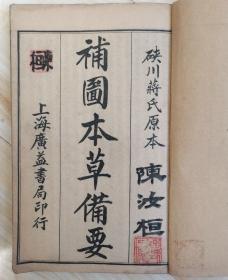 硤川蔣氏原本
陳汝桓
補圖本草備要
上海廣益書局印行